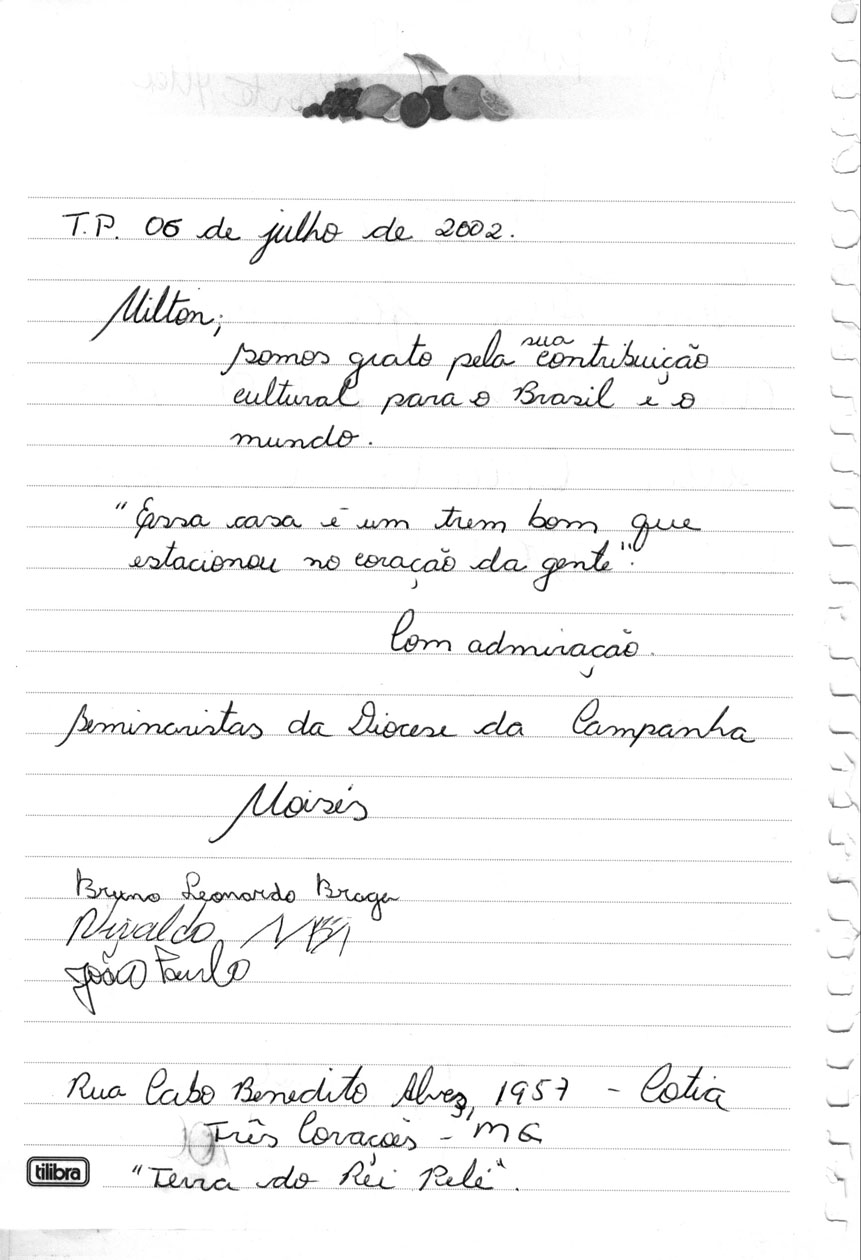 T.P. 06 de julho de 2002.
Milton;
somos grato pela sua contribuição
cultural para o Brasil e o
mundo.
"Essa casa é um trem bom que
estacionou no coração da gente".
Com admiração.
Seminaristas da Diocese da Campanha
Moisés
Bruno Leonardo Braga
Nivaldo
João Paulo
Rua Cabo Benedito Alves, 1957 - Cotia
Três Corações - MG
tilibra
"Terra do Rei Pelé".